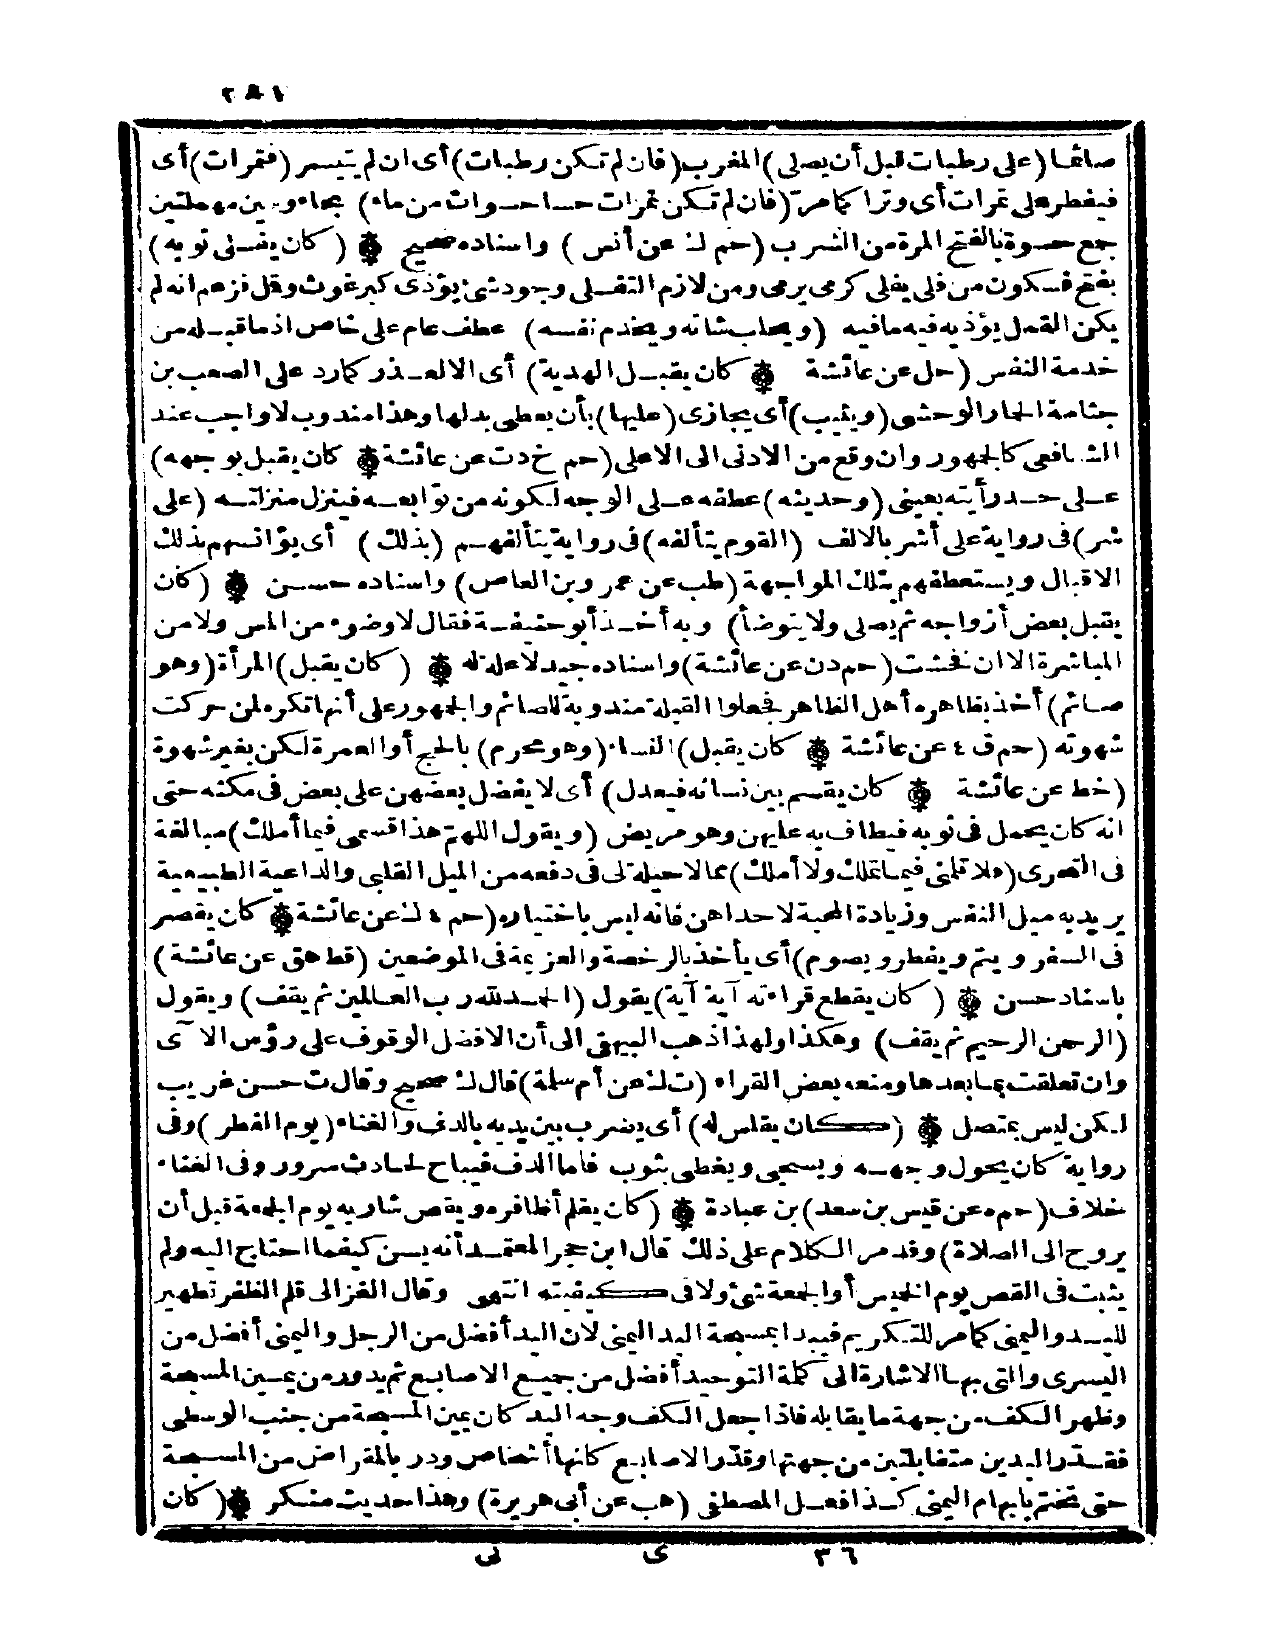 ٢٨١
صائما (على رطبات قبل أن يصلى) المغرب (فان لم تكن رطبات) أى ان لم يتيسر (فتمرات) أى
فيفطر على تمرات أى وترا كما مرّ (فان لم تكن تمرات حسا حسوات من ماء) بحاء وسين مهملتين
جمع حسوة بالفتح المرة من الشرب (حم ك عن أنس) واسناده صحيح ۞ (كان يفلى ثوبه)
بفتح فسكون من فلى يفلى كرمى يرمى ومن لازم التفلى وجود شئ يؤذى كبرغوث وقمل فزعم انه لم
يكن القمل يؤذيه فيه مافيه (ويحلب شاته ويخدم نفسه) عطف عام على خاص اذ ماقبله من
خدمة النفس (حل عن عائشة ۞ كان يقبل الهدية) أى الا لعذر كما رد على الصعب بن
جثامة الحمار الوحشى (ويثيب) أى يجازى (عليها) بأن يعطى بدلها وهذا مندوب لا واجب عند
الشافعى كالجمهور وان وقع من الادنى الى الاعلى (حم خ د ت عن عائشة ۞ كان يقبل بوجهه)
على حد رأيته بعينى (وحديثه) عطفه على الوجه لكونه من توابعه فينزل منزلته (على
شر) فى رواية على أشر بالالف (القوم يتألفه) فى رواية يتألفهم (بذلك) أى يؤانسهم بذلك
الاقبال ويستعطفهم بتلك المواجهة (طب عن عمرو بن العاص) واسناده حسن ۞ (كان
يقبل بعض أزواجه ثم يصلى ولا يتوضأ) وبه أخذ أبو حنيفة فقال لا وضوء من المس ولا من
المباشرة الا ان فحشت (حم د ن عن عائشة) واسناده جيد لا علة له ۞ (كان يقبل) المرأة (وهو
صائم) أخذ بظاهره أهل الظاهر فجعلوا القبلة مندوبة للصائم والجمهور على أنها تكره لمن حركت
شهوته (حم ق ٤ عن عائشة ۞ كان يقبل) النساء (وهو محرم) بالحج أو العمرة لكن بغير شهوة
(خط عن عائشة ۞ كان يقسم بين نسائه فيعدل) أى لا يفضل بعضهن على بعض فى مكثه حتى
انه كان يحمل فى ثوبه فيطاف به عليهن وهو مريض (ويقول اللهم هذا قسمى فيما أملك) مبالغة
فى التحرى (فلا تلمنى فيما تملك ولا أملك) مما لا حيلة لى فى دفعه من الميل القلبى والداعية الطبيعية
يريد به ميل النفس وزيادة المحبة لاحداهن فانه ليس باختياره (حم ٤ ك عن عائشة ۞ كان يقصر
فى السفر ويتم ويفطر ويصوم) أى يأخذ بالرخصة والعزيمة فى الموضعين (قط هق عن عائشة)
باسناد حسن ۞ (كان يقطع قراءته آية آية) يقول (الحمد لله رب العالمين ثم يقف) ويقول
(الرحمن الرحيم ثم يقف) وهكذا ولهذا ذهب البيهقى الى أن الافضل الوقوف على رؤس الآى
وان تعلقت بما بعدها ومنعه بعض القراء (ت ك عن أم سلمة) قال ك صحيح وقال ت حسن غريب
لكن ليس بمتصل ۞ (كان يقلس له) أى يضرب بين يديه بالدف والغناء (يوم الفطر) وفى
رواية كان يحول وجهه ويسجى ويغطى بثوب فاما الدف فيباح لحادث سرور وفى الغناء
خلاف (حم ه عن قيس بن سعد) بن عبادة ۞ (كان يقلم أظافره ويقص شاربه يوم الجمعة قبل أن
يروح الى الصلاة) وقد مر الكلام على ذلك قال ابن حجر المعتمد أنه يسن كيفما احتاج اليه ولم
يثبت فى القص يوم الخميس أو الجمعة شئ ولا فى كيفيته انتهى وقال الغزالى قلم الظفر تطهير
لليد واليمنى كما مر للتكريم فيبدا بمسبحة اليد اليمنى لان اليد أفضل من الرجل واليمنى أفضل من
اليسرى والتى بها الاشارة الى كلمة التوحيد أفضل من جميع الاصابع ثم يدور من يمين المسبحة
وظهر الكف من جهة ما يقابله فاذا جعل الكف وجه اليد كان يمين المسبحة من جنب الوسطى
فقدّر اليدين متقابلتين من جهتها وقدّر الاصابع كأنها أشخاص ودر بالمقراض من المسبحة
حتى تختم بابهام اليمنى كذا فعل المصطفى (هب عن أبى هريرة) وهذا حديث منكر ۞ (كان
٣٦ ى نى